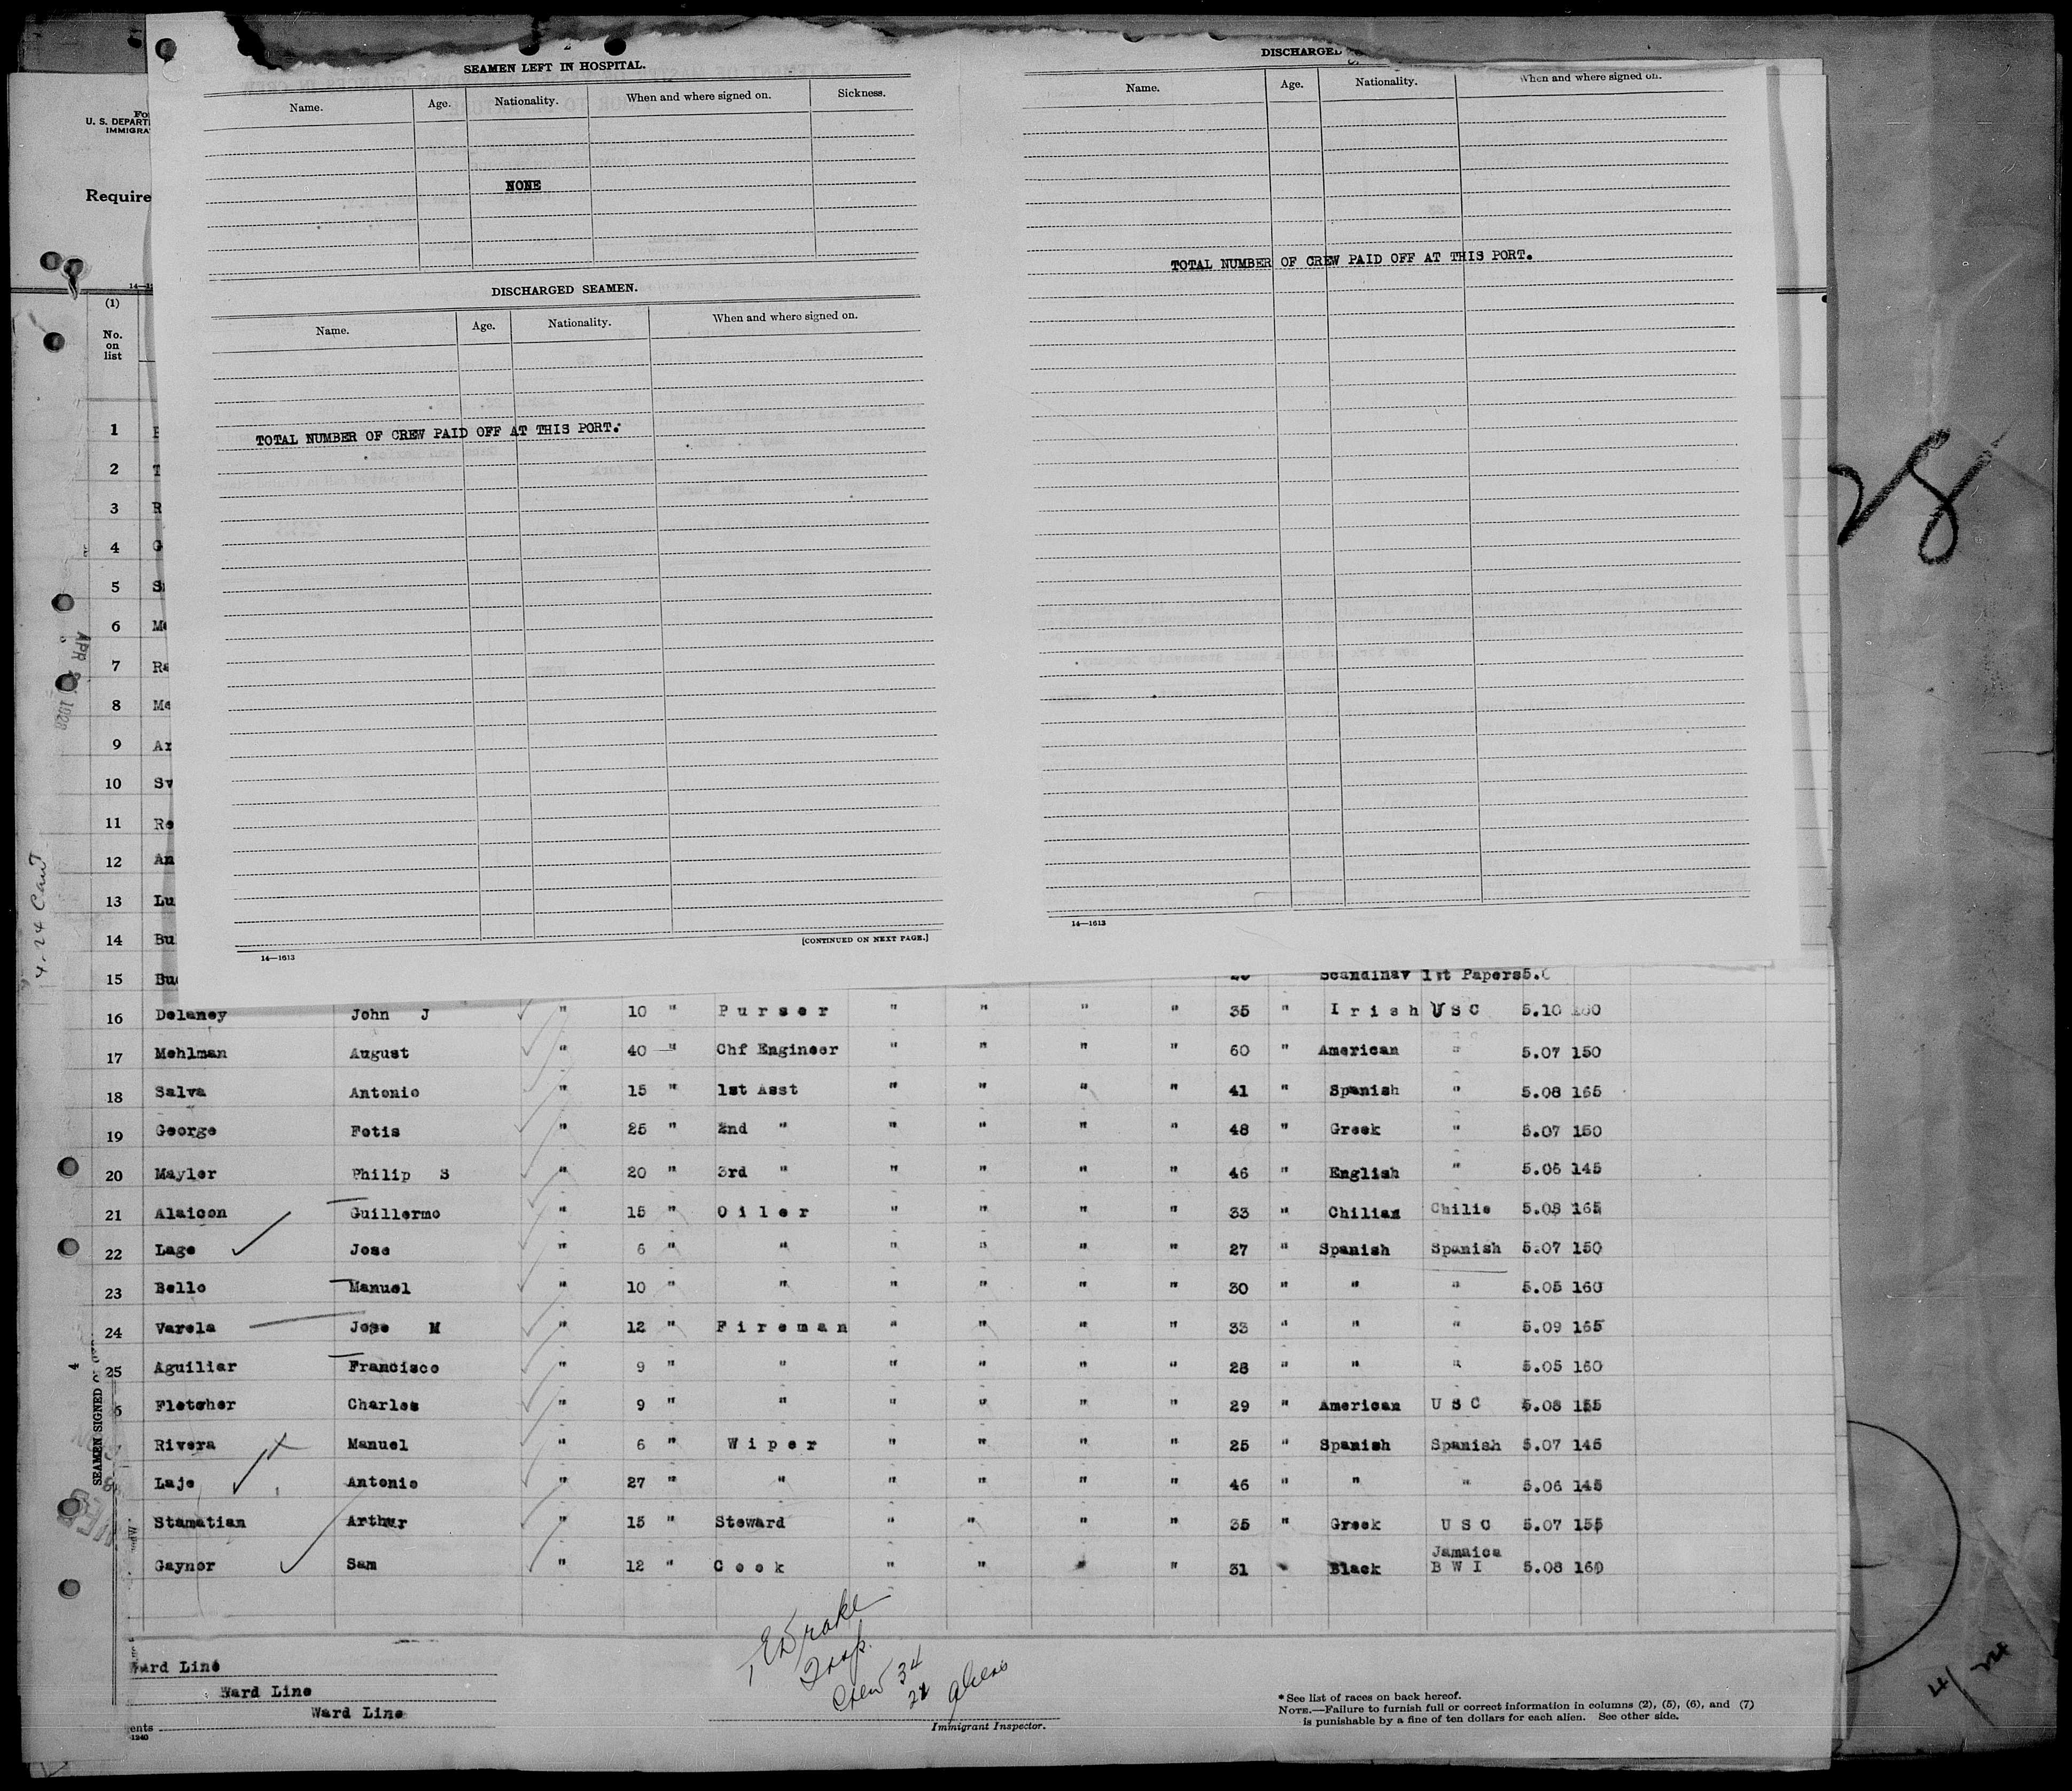 SEAMEN LEFT IN HOSPITAL.
Name. Age. Nationality. When and where signed on. Sickness.
NONE
DISCHARGED SEAMEN.
Name. Age. Nationality. When and where signed on.
TOTAL NUMBER OF CREW PAID OFF AT THIS PORT.
14—1613
[CONTINUED ON NEXT PAGE.]
DISCHARGED
Name. Age. Nationality. When and where signed on.
TOTAL NUMBER OF CREW PAID OFF AT THIS PORT.
14—1613
28
Fo
U. S. DEPART
IMMIGRA
Require
(1)
No.
on
list
1
2 T
3 R
4 G
5
6 Me
7 Re
8 Me
9 Ar
10 Sv
11 Re
12 An
13 Lu
14 Bu
15 Bu Scandinav 1st Papers 5.
16 Delaney John J " 10 " Purser " " " " 35 " Irish USC 5.10
17 Mehlman August " 40 " Chf Engineer " " " " 60 " American " 5.07 150
18 Salva Antonio " 15 " 1st Asst " " " " 41 " Spanish " 5.08 165
19 George Fotis " 25 " 2nd " " " " " 48 " Greek " 5.07 150
20 Mayler Philip S " 20 " 3rd " " " " " 46 " English " 5.06 145
21 Alaicon Guillermo " 15 " Oiler " " " " 33 " Chilian Chilie 5.08 165
22 Lage Jose " 6 " " " " " " 27 " Spanish Spanish 5.07 150
23 Bello Manuel " 10 " " " " " " 30 " " " 5.05 160
24 Varela Jose M " 12 " Fireman " " " " 33 " " " 5.09 165
25 Aguiliar Francisco " 9 " " " " " " 28 " " " 5.05 160
6 Fletcher Charles " 9 " " " " " " 29 " American USC 5.08 155
Rivera Manuel " 6 " Wiper " " " " 25 " Spanish Spanish 5.07 145
Laje Antonio " 27 " " " " " " 46 " " " 5.06 145
Stamatian Arthur " 15 " Steward " " " " 35 " Greek USC 5.07 155
Jamaica
Gaynor Sam " 12 " Cook " " " " 31 " Black B W I 5.08 160
SEAMEN SIGNED
APR 1928
4-24
Ward Line
Ward Line
Ward Line
ents
1240
Drake
Insp.
Crew 34
21 aliens
Immigrant Inspector.
* See list of races on back hereof.
NOTE.—Failure to furnish full or correct information in columns (2), (5), (6), and (7)
is punishable by a fine of ten dollars for each alien. See other side.
4/24